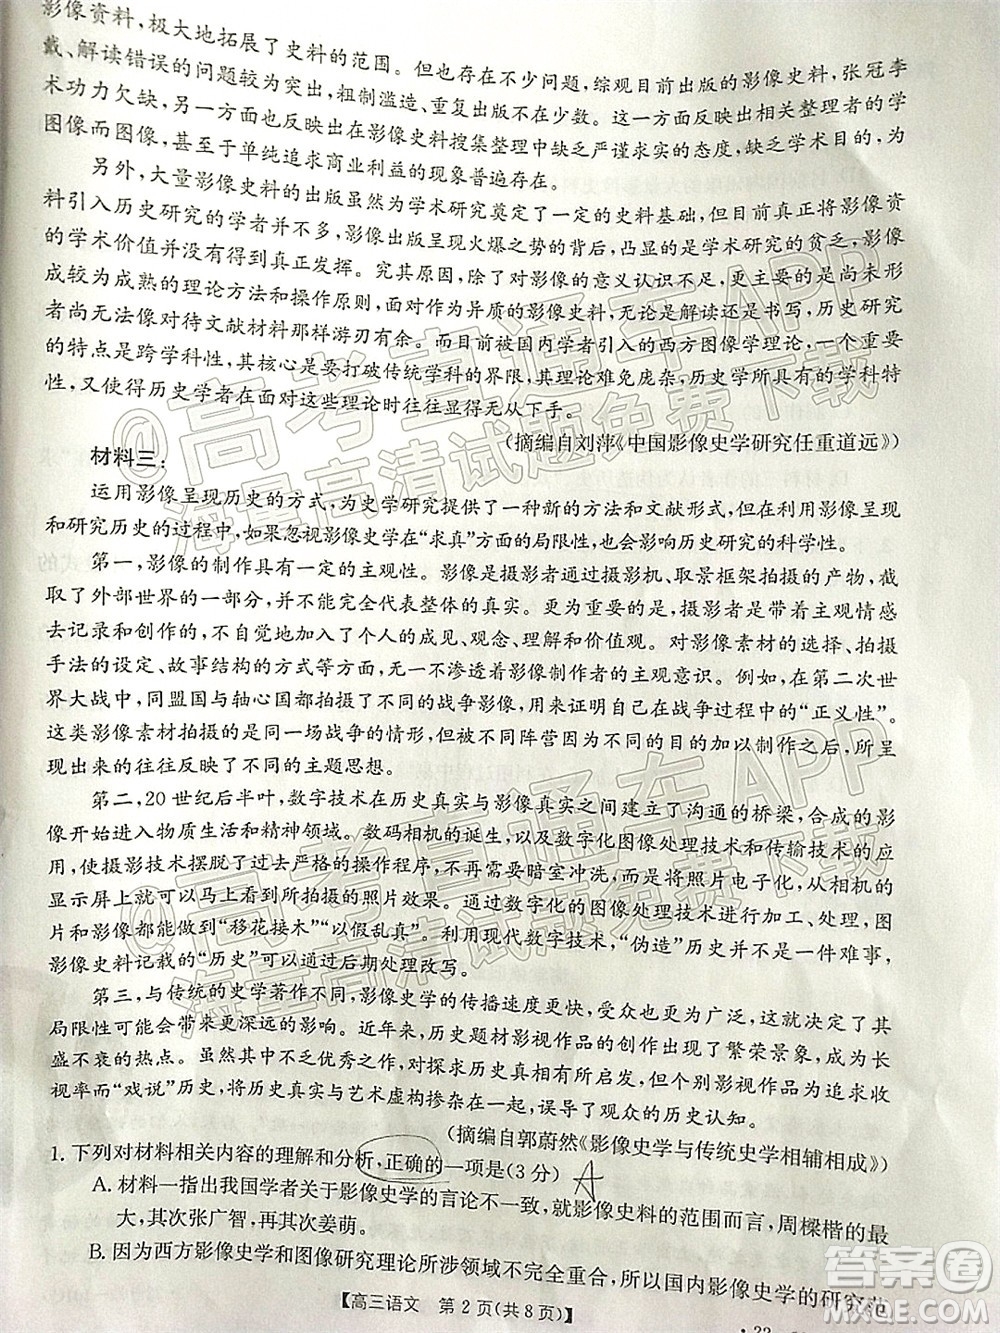 影像资料，极大地拓展了史料的范围。但也存在不少问题，综观目前出版的影像史料，张冠李
戴、解读错误的问题较为突出，粗制滥造、重复出版的不在少数。这反映出相关整理者的学
术功力欠缺，另一方面也反映出在影像史料搜集整理中缺乏严谨求实的态度，缺乏学术性、为
图像而图像，甚至于单纯追求商业利益的现象普遍存在。
另外，大量影像史料的出版虽然为学术研究奠定了一定的史料基础，但目前真正将影像资
料引入历史研究的学者并不多，影像出版呈现火爆之势的背后，凸显的是学术研究的贫乏，影像
的学术价值并没有得到真正发挥。究其原因，除了对影像的意义认识不足，更主要的是尚未形
成较为成熟的理论方法和操作原则，面对影像史料，无论是解读还是书写，历史研究
者尚无法像对待文献材料那样游刃有余。而目前被国内学者引入的西方图像学理论，一个重要
的特点是跨学科性，其核心是打破传统学科的界限，其理论难免庞杂，历史学所具有的学科特
性，又使得历史学者在面对这些理论时往往显得无从下手。
（摘编自刘萍《中国影像史学研究任重道远》）
材料三：
运用影像呈现历史的方式，为史学研究提供了一种新的方法和文献形式，但在利用影像呈现
和研究历史的过程中，如果忽视影像史学在“求真”方面的局限性，也会影响历史研究的科学性。
第一，影像的制作具有一定的主观性。影像是摄影者通过摄影机、取景框拍摄的产物，截
取了外部世界的一部分，并不能完全代表整体的真实。更为重要的是，摄影者是带着主观情感
去记录和创作的，不自觉地加入了个人的成见、观念、理解和价值观。对影像素材的选择、拍摄
手法的设定、故事结构的方式等方面，无一不渗透着影像制作者的主观意识。例如，在第二次世
界大战中，同盟国与轴心国都拍摄了大量的战争影像，用来证明自己在战争过程中的“正义性”。
这类影像素材拍摄的是同一场战争的情形，但被不同阵营因为不同目的加以制作之后，所呈
现出来的往往反映了不同的主题思想。
第二，20 世纪后半叶，数字技术在历史真实与影像真实之间建立了沟通的桥梁，合成的影
像开始进入物质生活和精神领域。数码相机的诞生，以及数字化图像处理技术和传输技术的应
用，使摄影技术摆脱了过去严格的操作程序，不再需要暗室冲洗，而是将照片电子化，从相机的
显示屏上就可以马上看到所拍摄的照片效果。通过数字化的图像处理技术和后期加工、处理，图
片和影像都能做到“移花接木”“以假乱真”。利用现代数字技术，“伪造”历史并不是一件难事，
影像史料记载的“历史”可以通过后期处理改写。
第三，与传统的史学著作不同，影像史学的传播速度更快，受众也更为广泛，这决定了其
局限性可能会带来更深远的影响。近年来，历史题材影视作品的创作出现了繁荣景象，成为长
盛不衰的热点。虽然其中不乏优秀之作，能够让观众对历史真相有所启发，但大量作品为追求收
视率而“戏说”历史，将历史真实与艺术虚构掺杂在一起，误导了观众的历史认知。
（摘编自郭蔚然《影像史学与传统史学相辅相成》）
1. 下列对材料相关内容的理解和分析，正确的一项是（3 分）
A. 材料一指出我国学者关于影像史学的言论不一致，就影像史料的范围而言，周樑楷的最
大，其次张广智，再次姜萌。
B. 因为西方影像史学和图像研究理论所涉领域不完全重合，所以国内影像史学的研究范
【高三语文　第 2 页(共 8 页)】
@高考直通车APP
海量高清试题免费下载
@高考直通车APP
海量高清试题免费下载
答案圈
MXQE.COM